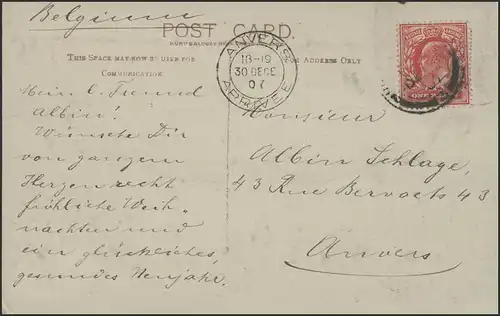 Belgium
POST CARD.
THIS SPACE MAY NOW BE USED FOR
COMMUNICATION.
ADDRESS ONLY
ANVERS
18-19
30 DECE
07
ARRIVEE
ONE
Mein l. Freund
Albin!
Wünsche Dir
von ganzem
Herzen recht
fröhliche Weih„
nachten und
ein glückliches,
gesundes Neujahr.
Monsieur
Albin Schlage,
43 Rue Bervoets 43
Anvers